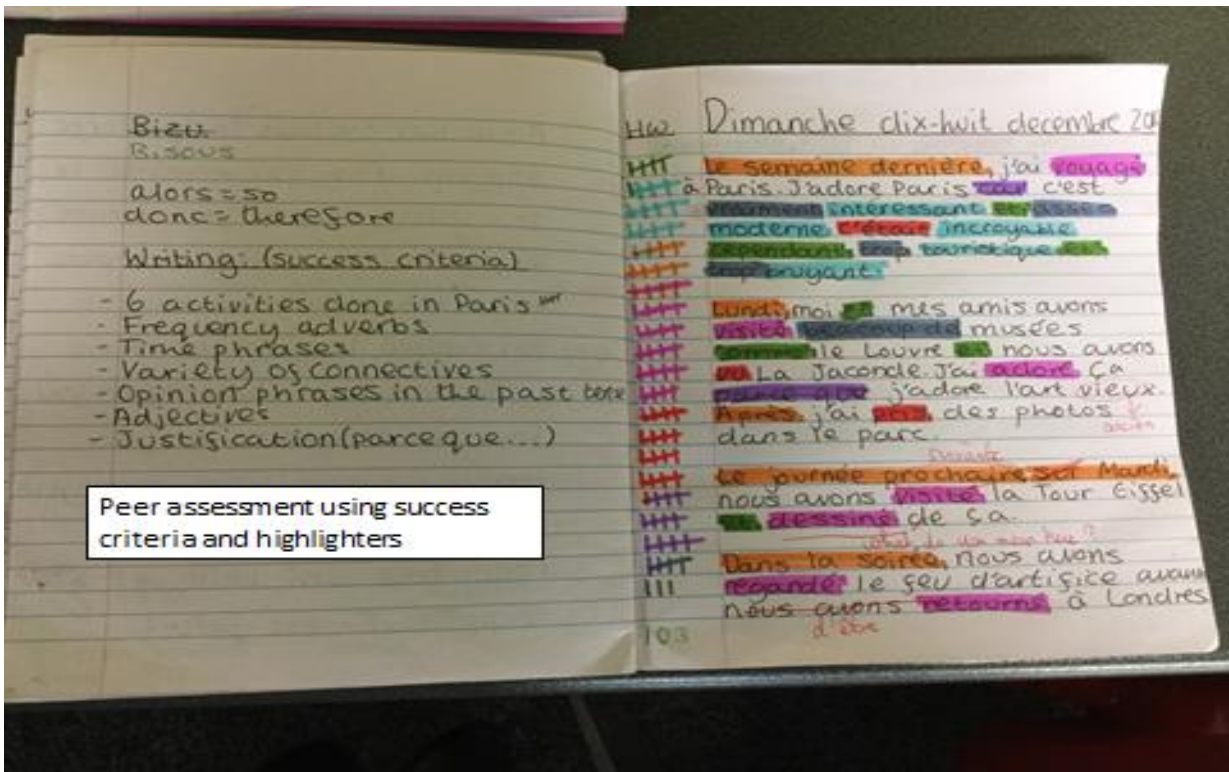 Bizu.
Bisous
alors = so
donc = therefore
Writing: (success criteria)
- 6 activities done in Paris
- Frequency adverbs
- Time phrases
- Variety of connectives
- Opinion phrases in the past tense
- Adjectives
- Justification (parce que...)
Peer assessment using success
criteria and highlighters
HW Dimanche dix-huit decembre
Le semaine dernière, j'ai voyagé
à Paris. J'adore Paris car c'est
vraiment intéressant et assez
moderne c'était incroyable.
Cependant, trop touristique et
trop bruyant.
Lundi, moi et mes amis avons
visité beaucoup de musées
comme le Louvre et nous avons
vu La Jaconde. J'ai adoré ça
parce que j'adore l'art vieux.
Après, j'ai pris des photos
ancien
dans le parc.
Le journée prochaine sur Mardi,
nous avons visité la Tour Eiffel
et dessiné de ça.
what do you mean here?
Dans la soirée, nous avons
regardé le feu d'artifice avant
nous avons retourné à Londres
d'être
103